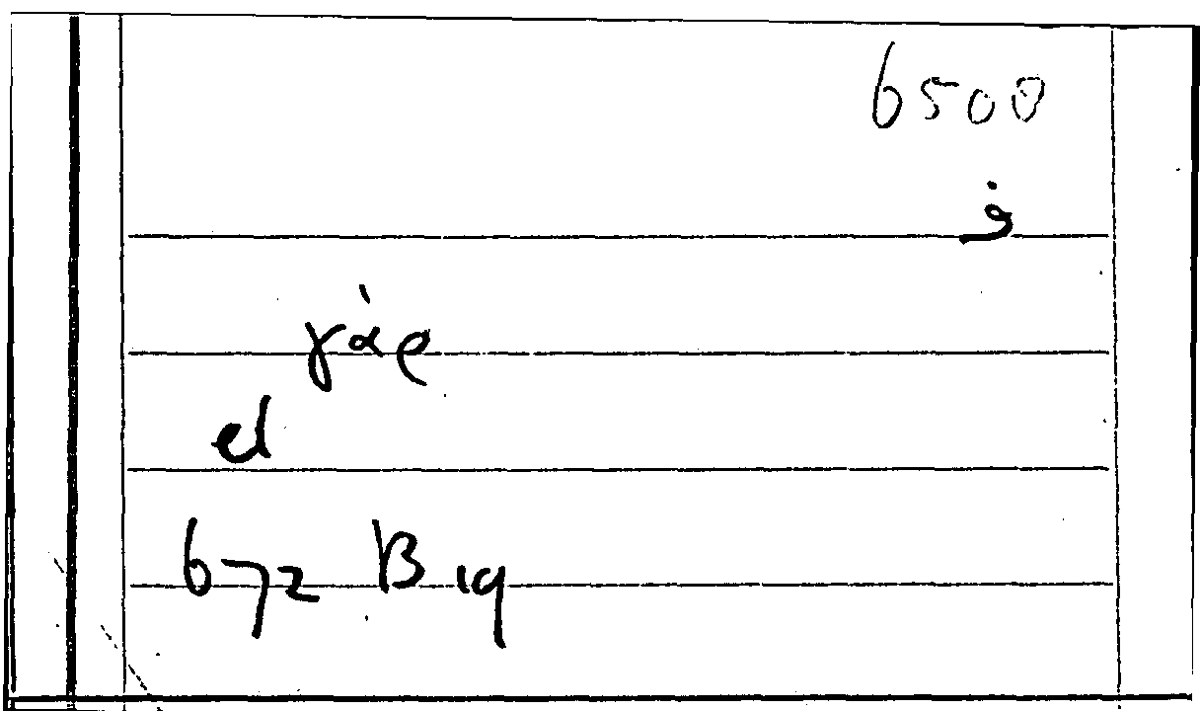 6500
ف
γὰρ
el
672 B 19